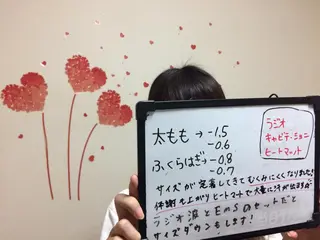 太もも→-1.5
-0.6
ふくらはぎ→-0.8
-0.7
ラジオ
キャビテーション
ヒートマット
サイズが定着してきてむくみにくくなりました!
体謝も上がりヒートマットで大量に汗が出るのが
ラジオ波とEMSのセットだと
サイズダウンもします!